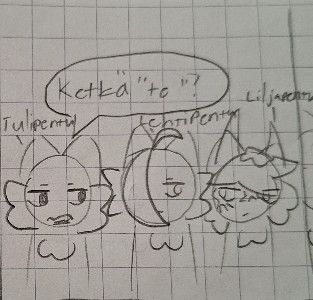 Ketkä "te"?
Tulipentu
Lehtipentu
Liljapentu